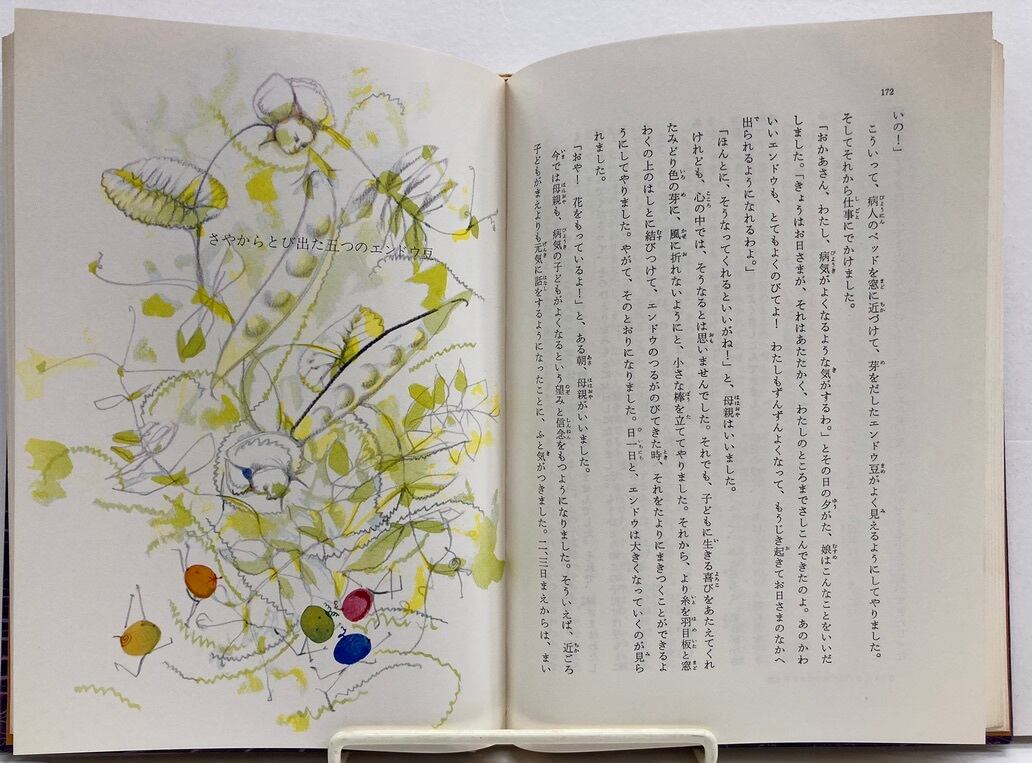 172
いの！」
こういって、病人のベッドを窓に近づけて、芽をだしたエンドウ豆がよく見えるようにしてやりました。
そしてそれから仕事にでかけました。
「おかあさん、わたし、病気がよくなるような気がするわ。」とその日の夕がた、娘はこんなことをいいだ
しました。「きょうはお日さまが、それはあたたかく、わたしのところまでさしこんできたのよ。あのかわ
いいエンドウも、とてもよくのびてよ！　わたしもずんずんよくなって、もうじき起きてお日さまのなかへ
出られるようになれるわよ。」
「ほんとに、そうなってくれるといいがね！」と、母親はいいました。
けれども、心の中では、そうなるとは思いませんでした。それでも、子どもに生きる喜びをあたえてくれ
たみどり色の芽に、風に折れないようにと、小さな棒を立ててやりました。それから、より糸を羽目板と窓
わくの上のはしとに結びつけて、エンドウのつるがのびてきた時、それをたよりにまきつくことができるよ
うにしてやりました。やがて、そのとおりになりました。日一日と、エンドウは大きくなっていくのが見ら
れました。
「おや！　花をもっているよ！」と、ある朝、母親がいいました。
今では母親も、病気の子どもがよくなるという望みと信念をもつようになりました。そういえば、近ごろ
子どもがまえよりも元気に話をするようになったことに、ふと気がつきました。二、三日まえからは、まい
さやからとび出た五つのエンドウ豆